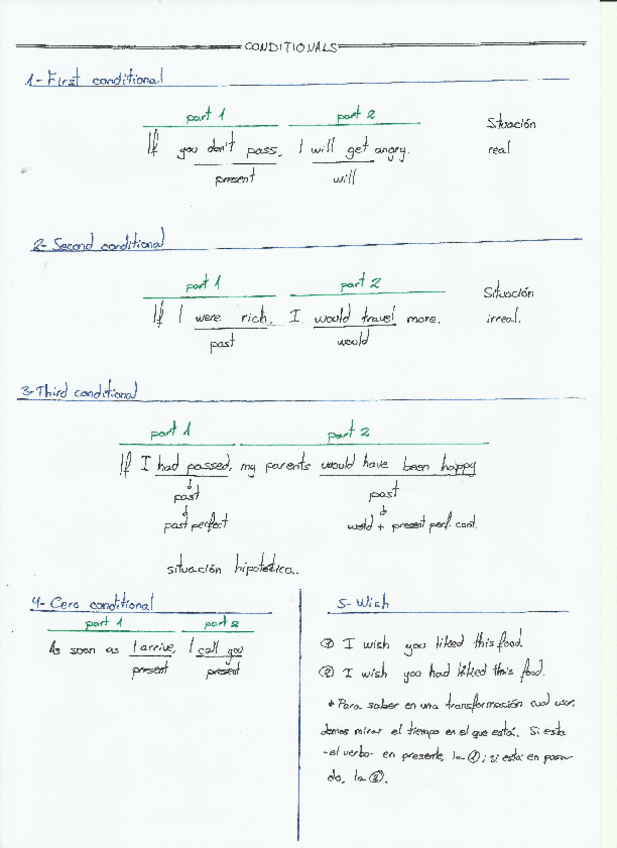 CONDITIONALS
1- First conditional
part 1 part 2
If you don't pass, I will get angry.
present will
Situación
real
2- Second conditional
part 1 part 2
If I were rich, I would travel more.
past would
Situación
irreal.
3- Third conditional
part 1 part 2
If I had passed, my parents would have been happy
past past
past perfect wold + present perf. cont.
situación hipotética.
4- Cero conditional
part 1 part 2
As soon as I arrive, I call you
present present
5- Wish
① I wish you liked this food.
② I wish you had liked this food.
* Para saber en una transformación cual usar,
demos mirar el tiempo en el que está. Si esta
-el verbo- en presente, la ①; si está en pasa-
do, la ②.